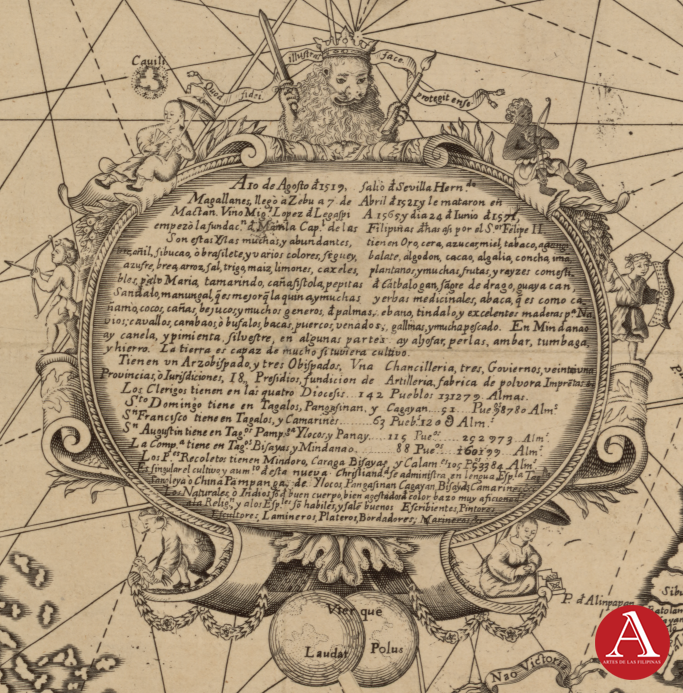 Cauili
Quod fidei. illustrat face. protegit ense.
A 10 de Agosto d 1519, salio d Sevilla Hern.do
Magallanes, llegò a Zebu a 7 de Abril d 1521 y le mataron en
Mactan. Vino Mig.l Lopez d Legaspi A 1565 y dia 24 d Iunio d 1571,
empezò la fundac.n d Manila Cap.l de las Filipinas dhas asi por el S.or Felipe II
Son estas Yslas muchas y abundantes, tienen Oro, cera, azucar, miel, tabaco,
añil, sibucao, ò brasilete, y varios colores, balate, algodon, cacao, algalia, concha,
azufre, brea, arroz, sal, trigo, maiz, limones, plantanos, y muchas frutas, y rayzes comesti.
bles, palo Maria, tamarindo, cañafistola, pepitas d Catbalogan, sãgre de drago, guayacan
Sandalo, manungal, q̃ es mejor q̃ la quina, y muchas yerbas medicinales, abaca, q̃ es como ca
ñamo, cocos, cañas, bejucos, y muchos generos, d palmas, ebano, tindalo, y excelentes maderas p.a Na
vios; cavallos, carabaos, ò bufalos, bacas, puercos, venados, gallinas, y mucha pescado. En Mindanao
ay canela, y pimienta silvestre, en algunas partes ay aljofar, perlas, ambar, tumbaga,
y hierro. La tierra es capaz de mucho si tuviera cultivo.
Tienen vn Arzobispado, y tres Obispados, Vna Chancilleria, tres, Goviernos, veintivna
Provincias, ò Iurisdiciones, 18, Presidios, fundicion de Artilleria, fabrica de polvora
Los Clerigos tienen en las quatro Diocesis. 142 Pueblos 131279. Almas.
S.to Domingo tiene en Tagalos, Pangasinan, y Cagayan 51 Pue.s 8780 Alm.s
S.n Francisco tiene en Tagalos, y Camarines 63 Pueb.s Alm.s
S.n Augustin tiene en Tag.os Pamp.ga Ylocos, y Panay 115 Pue.os 252973 Alm.s
La Comp.a tiene en Tag.s Bisayas, y Mindanao 88 Pue.os Alm.s
Los P.es Recoletos tienen Mindoro, Caraga Bisayas, y Calam.es 105 Alm.s
Es singular el cultivo y aum.to desta nueva Christiand se administra en lengua Esp.la
ò China Pampanga, de Ylocos, Pangasinan Cagayan Bisayas Camarines
Los Naturales, ò Indios, sõ d buen cuerpo, bien agestados d color bazo muy
ala Relig.n y alos Esp.les sõ habiles, y salẽ buenos Escribientes, Pintores,
Escultores, Lamineros, Plateros, Bordadores, Marineros
P. d Alinpapan
Vter que
Laudat Polus
Nao Victoria
A
ARTES DE LAS FILIPINAS